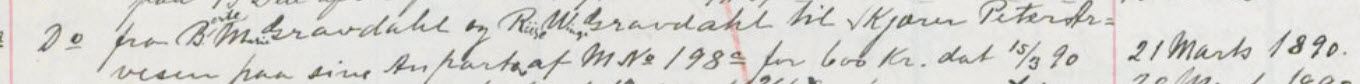 Do fra B. M. Gravdahl og Gravdahl til Skjærer Peter Ar=
vesen paa sine Anparter af M No 198c for 600 Kr. dat 15/3 90 21 Marts 1890.